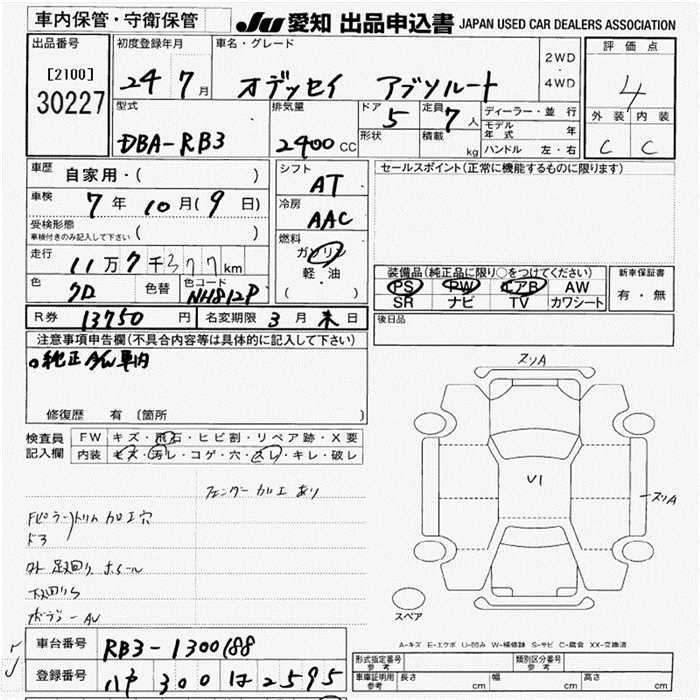 車内保管・守衛保管
JU 愛知 出品申込書 JAPAN USED CAR DEALERS ASSOCIATION
出品番号
[2100]
30227
初度登録年月
24 7月
車名・グレード
オデッセイ アブソルート
2WD
・
4WD
評価点
4
外装 内装
C C
型式
DBA-RB3
排気量
2400 CC
ドア
5
形状
定員
7 人
積載
kg
ディーラー・並行
モデル年式 年
ハンドル 左・右
車歴 自家用・( )
車検 7年10月(9日)
受検形態
車検付きのみ記入して下さい ( )
走行 11万7千377km
色 クロ 色替 色コード NH812P
シフト
AT
冷房
AAC
燃料
ガソリン
軽・油
( )
セールスポイント(正常に機能するものに限ります)
装備品(純正品に限り○をつけてください)
PS PW エアB AW
SR ナビ TV カワシート
新車保証書
有・無
後日品
R券 13750円 名変期限 3月末日
注意事項申告欄(不具合内容等は具体的に記入して下さい)
○純正AW車内
修復歴 有 (箇所 )
検査員
記入欄
FW キズ・飛石・ヒビ割・リペア跡・X要
内装 キズ・汚レ・コゲ・穴・スレ・キレ・破レ
フェンダー カロエ あり
Fピラートリム カロエ穴
ドア
外 足廻り ホイール
下廻りS
ボデー AU
スリA
U1
スリA
スペア
A-キズ E-エクボ U-凹み W-補修跡 S-サビ C-腐食 XX-交換済
車台番号 RB3-1300188
登録番号 300 は 2595
形式指定番号
参考
類別区分番号
参考
車庫証明用
参考
長さ cm 幅 cm 高さ cm